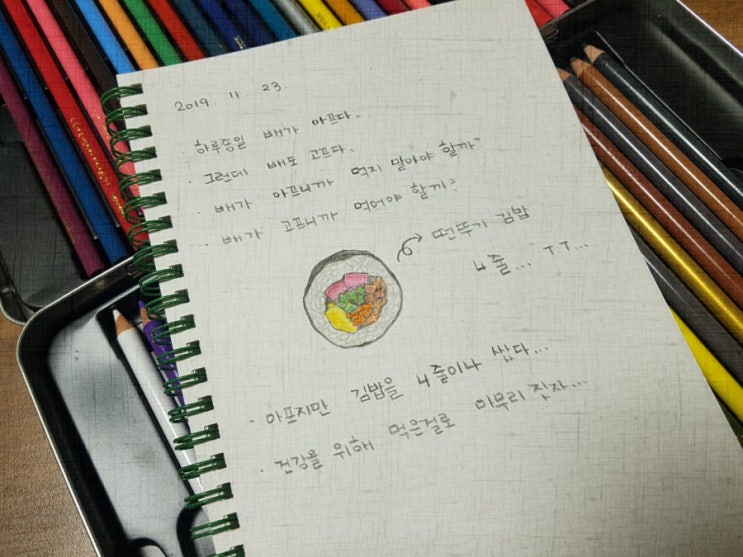 2019. 11. 23.
하루종일 배가 아프다.
· 그런데 배도 고프다.
· 배가 아프니까 먹지 말아야 할까?
· 배가 고프니까 먹어야 할까?
김밥
4줄... TT...
· 아프지만 김밥을 4줄이나 쌌다...
· 건강을 위해 먹은걸로 마무리 짓자...